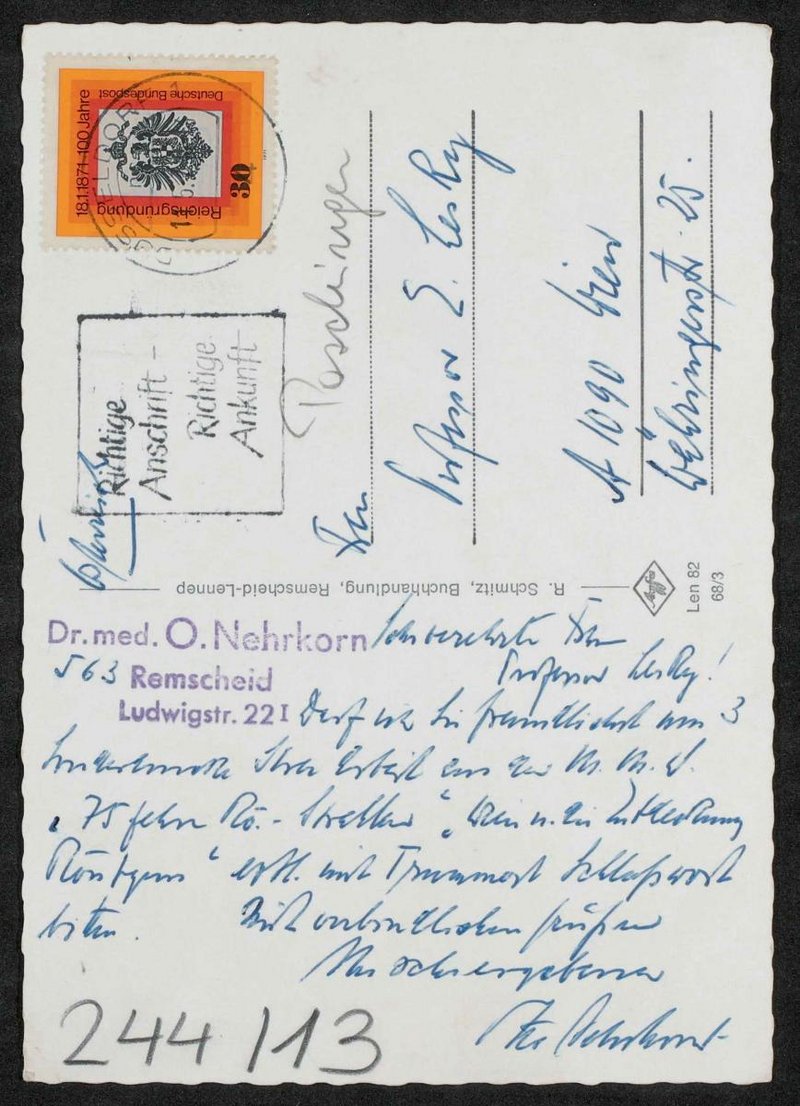 18.1.1871-100 Jahre
Reichsgründung
Deutsche Bundespost
30
DÜSSELDORF 1
Richtige
Anschrift -
Richtige
Ankunft
Paschinger
Professor E. Lesky
A 1090 Wien
Währingerstr. 25.
R. Schmitz, Buchhandlung, Remscheid-Lennep
Agfa
Len 82
68/3
Dr. med. O. Nehrkorn
563 Remscheid
Ludwigstr. 22 I
Sehr verehrte Frau
Professor Lesky!
Darf ich Sie freundlichst um 3
Sonderdrucke Ihrer Arbeit aus der M. M. W.
„75 Jahre Rö.-Strahlen" „Wien u. die Entdeckung
Röntgens" evtl. mit Schlußwort
bitten.
Mit verbindlichen Grüßen
Ihr sehr ergebener
Nehrkorn
244/13